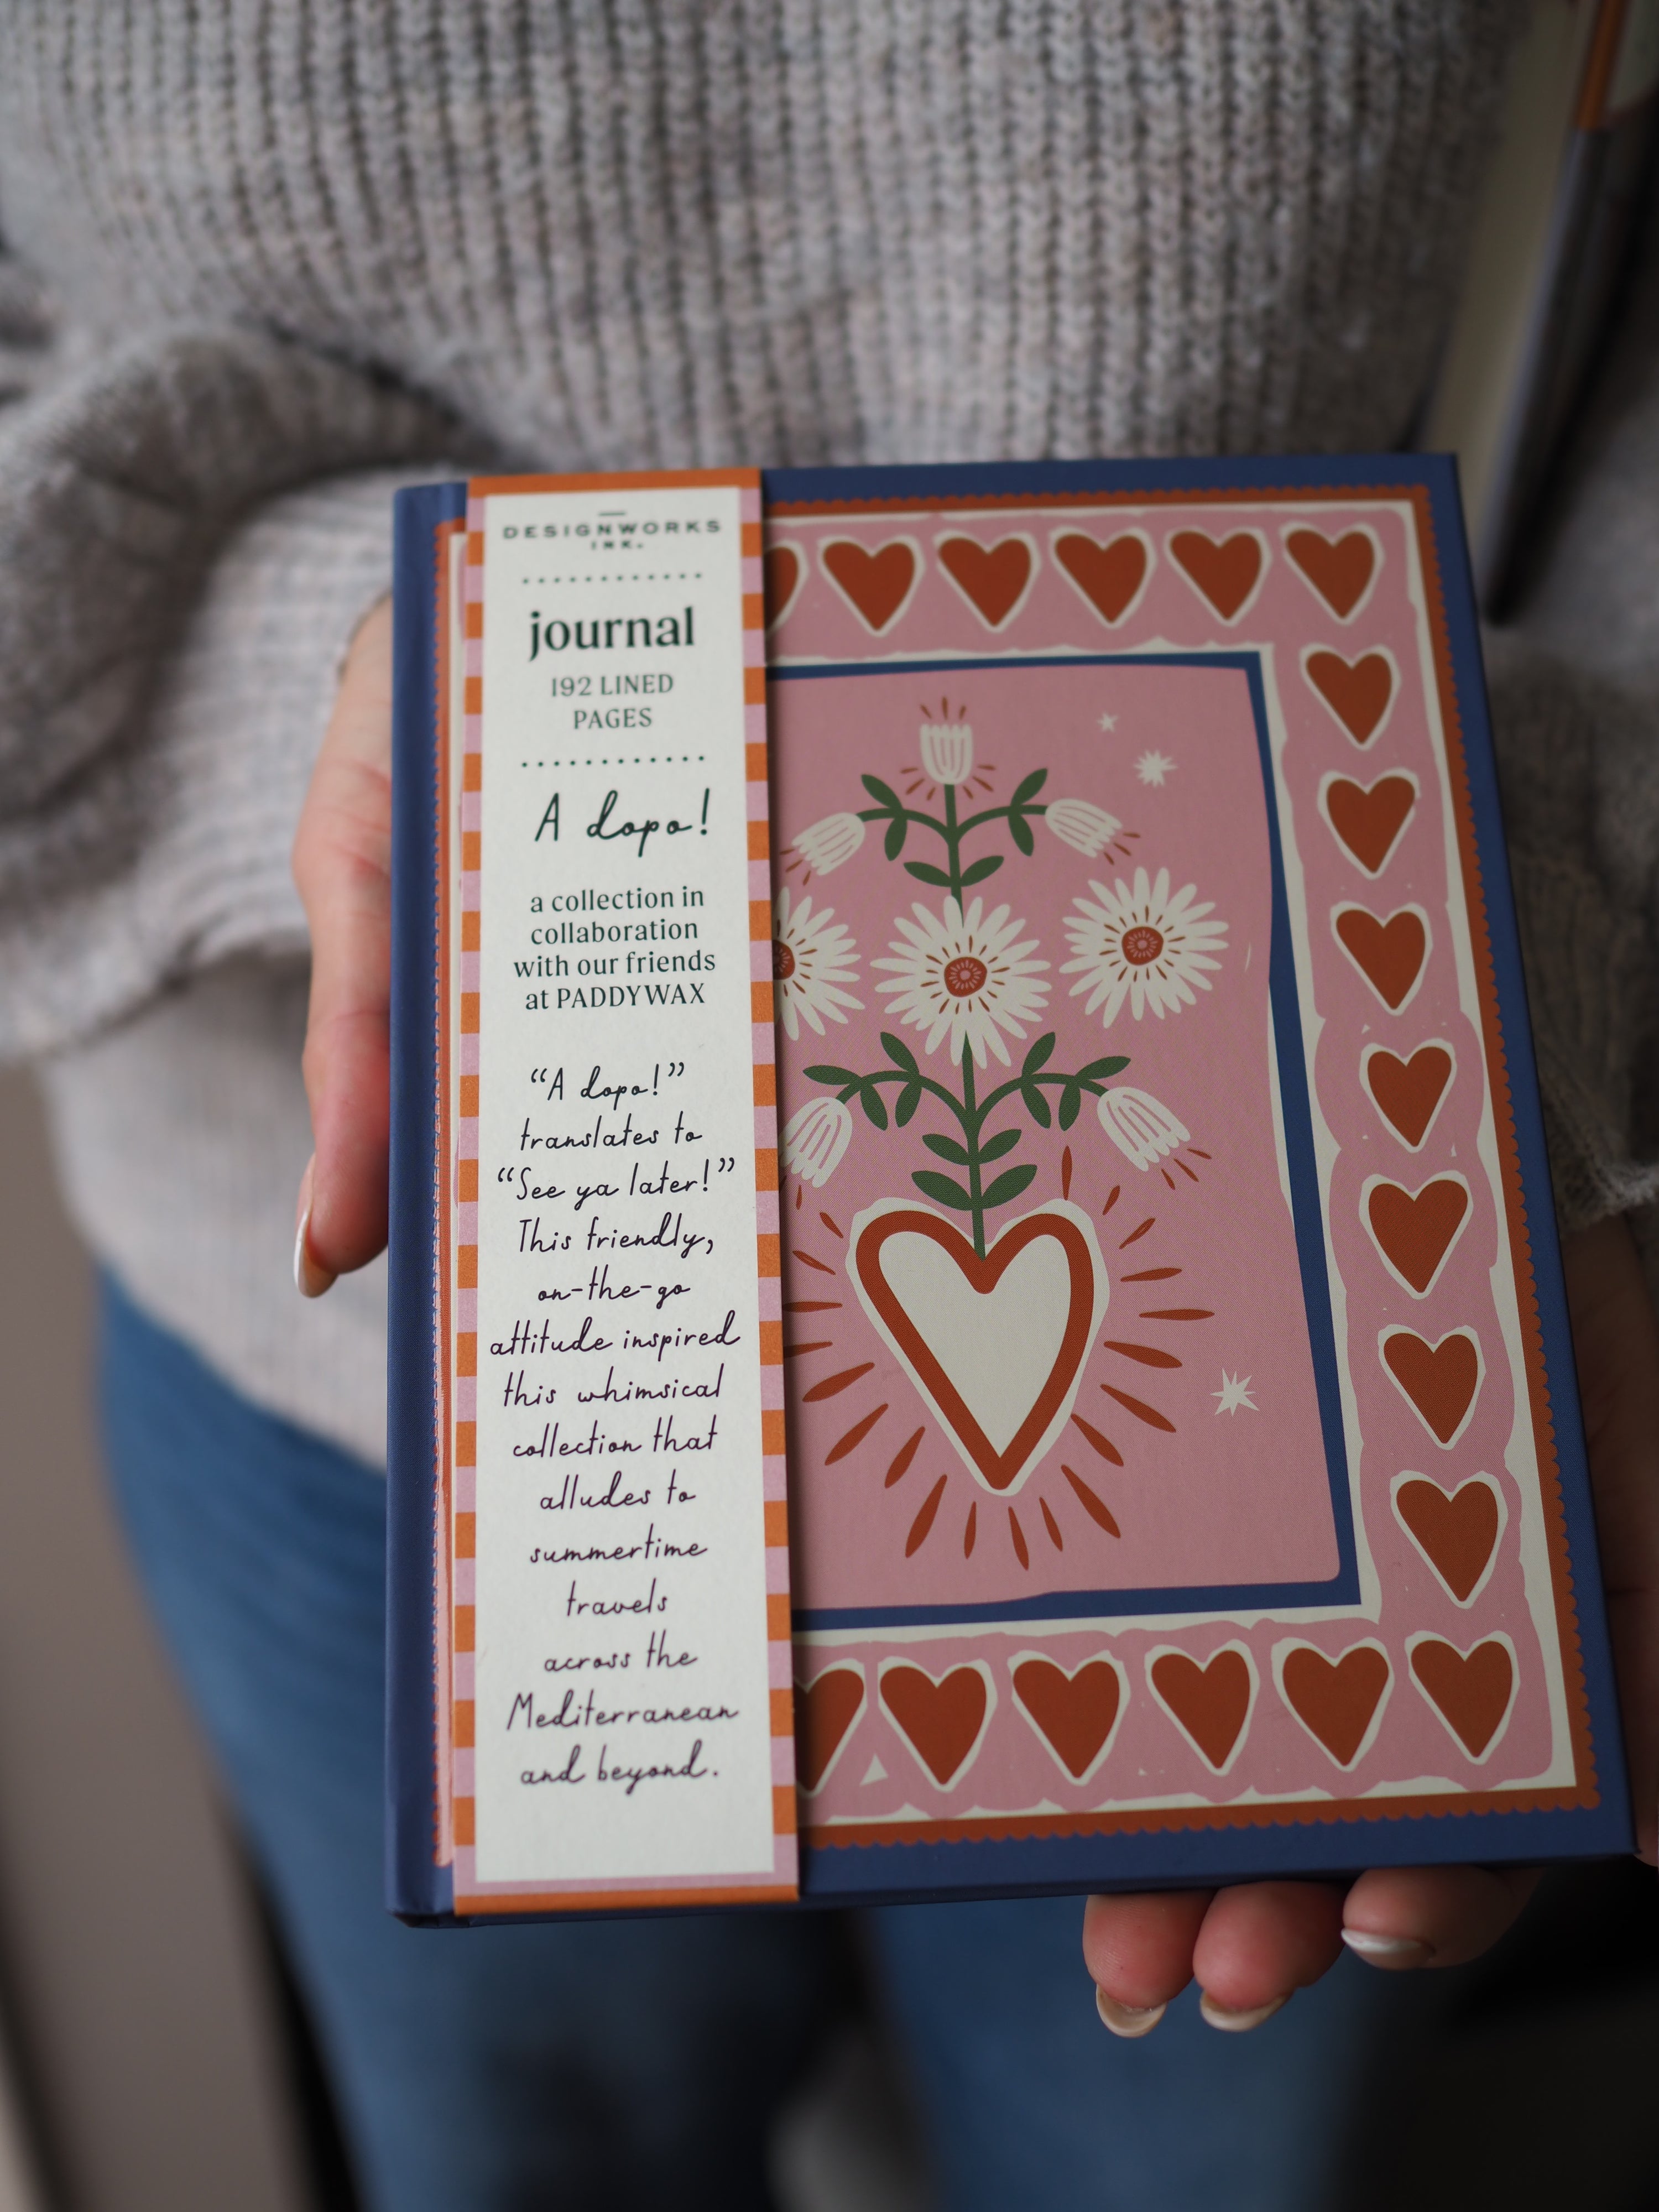 DESIGNWORKS
INK.
journal
192 LINED
PAGES
A dopo!
a collection in
collaboration
with our friends
at PADDYWAX
“A dopo!”
translates to
“See ya later!”
This friendly,
on-the-go
attitude inspired
this whimsical
collection that
alludes to
summertime
travels
across the
Mediterranean
and beyond.